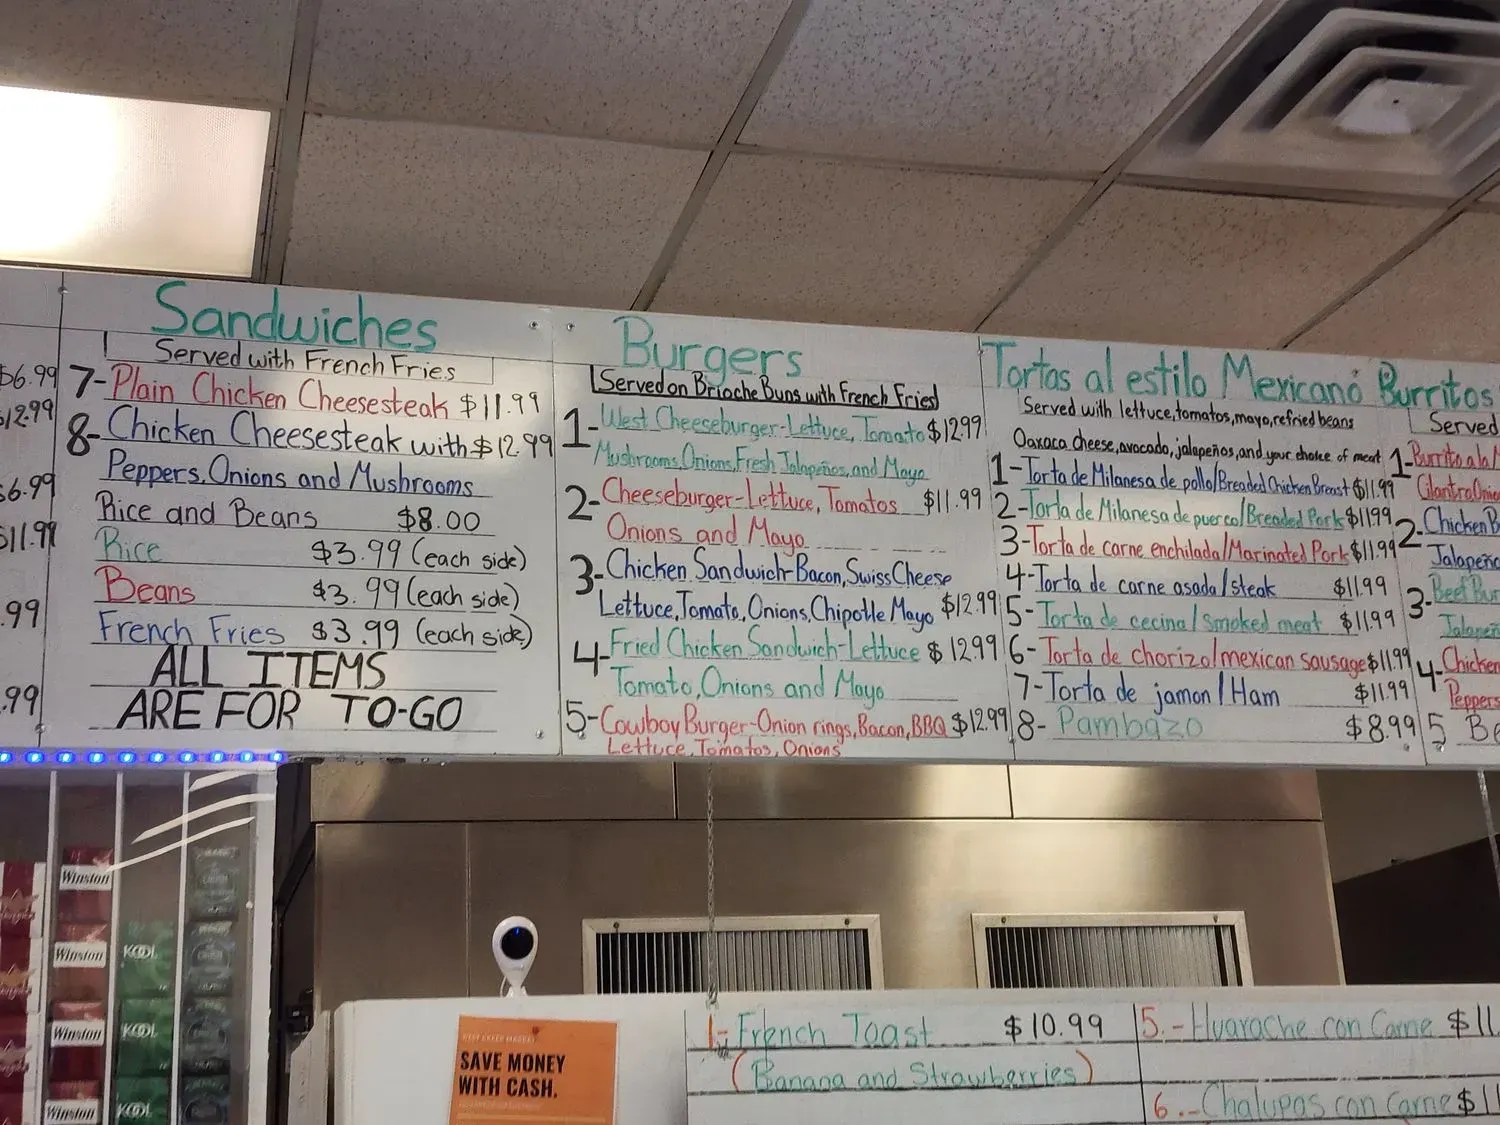 $6.99
$12.99
$6.99
$11.99
.99
.99
Sandwiches
Served with French Fries
7-Plain Chicken Cheesesteak $11.99
8-Chicken Cheesesteak with $12.99
Peppers, Onions and Mushrooms
Rice and Beans $8.00
Rice $3.99 (each side)
Beans $3.99 (each side)
French Fries $3.99 (each side)
ALL ITEMS
ARE FOR TO-GO
Burgers
(Served on Brioche Buns with French Fries)
1-West Cheeseburger-Lettuce, Tomato $12.99
Mushrooms, Onions, Fresh Jalapeños, and Mayo
2-Cheeseburger-Lettuce, Tomatos $11.99
Onions and Mayo
3-Chicken Sandwich-Bacon, Swiss Cheese
Lettuce, Tomato, Onions, Chipotle Mayo $12.99
4-Fried Chicken Sandwich-Lettuce $12.99
Tomato, Onions and Mayo
5-Cowboy Burger-Onion rings, Bacon, BBQ $12.99
Lettuce, Tomatos, Onions
Tortas al estilo Mexicano
Served with lettuce, tomatos, mayo, refried beans
Oaxaca cheese, avocado, jalapeños, and your choice of meat
1-Torta de Milanesa de pollo/Breaded Chicken Breast $11.99
2-Torta de Milanesa de puerco/Breaded Pork $11.99
3-Torta de carne enchilada/Marinated Pork $11.99
4-Torta de carne asada/steak $11.99
5-Torta de cecina/smoked meat $11.99
6-Torta de chorizo/mexican sausage $11.99
7-Torta de jamon/Ham $11.99
8-Pambazo $8.99
Burritos
Served
1-Burrito a la
Cilantro
2-Chicken B
Jalapeño
3-Beef Bur
Jalapeñ
4-Chicken
Peppers
5 Be
Winston
Winston KOOL
Winston KOOL
Winston KOOL
SAVE MONEY
WITH CASH.
1-French Toast $10.99
(Banana and Strawberries)
5.-Huarache con Carne $11
6.-Chalupas con carne $11